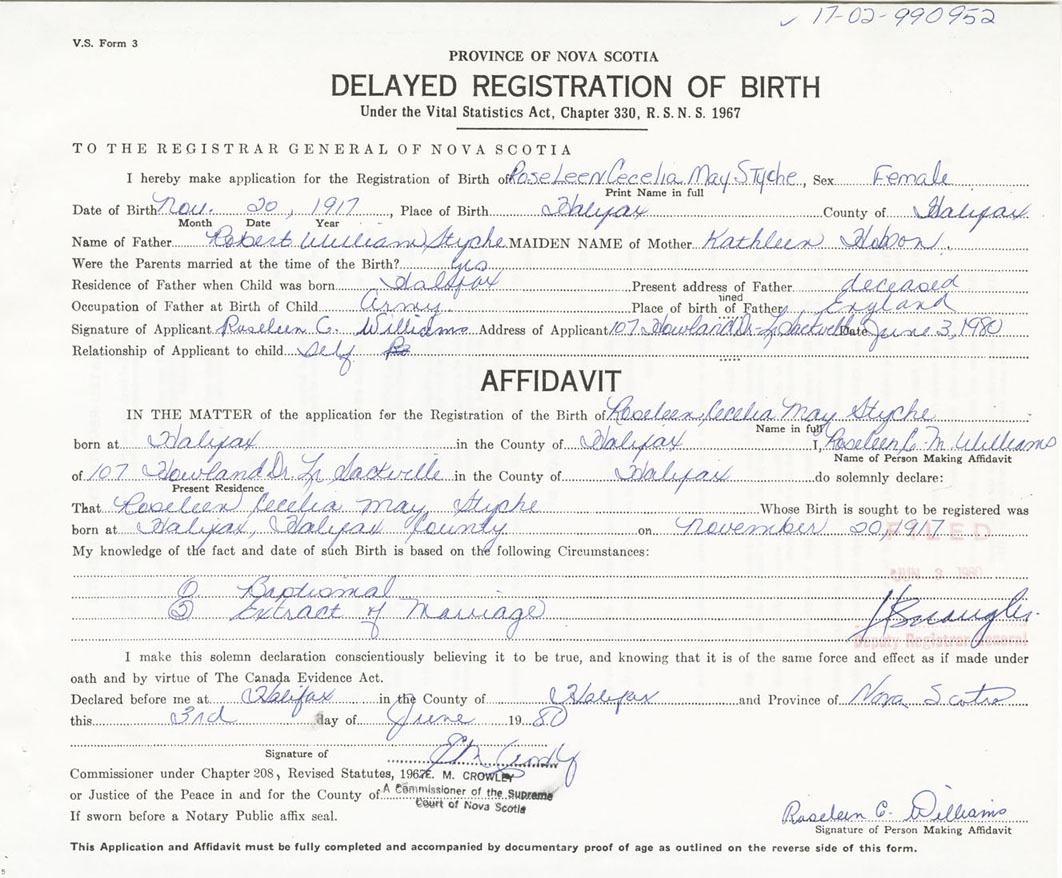 ✓ 17-02-990952
V.S. Form 3
PROVINCE OF NOVA SCOTIA
DELAYED REGISTRATION OF BIRTH
Under the Vital Statistics Act, Chapter 330, R.S.N.S. 1967
TO THE REGISTRAR GENERAL OF NOVA SCOTIA
I hereby make application for the Registration of Birth of RoseLeen Cecelia May Styche, Sex Female
Print Name in full
Date of Birth Nov. 20, 1917, Place of Birth Halifax County of Halifax
Month Date Year
Name of Father Robert William Styche MAIDEN NAME of Mother Kathleen Hobson.
Were the Parents married at the time of the Birth? yes
Residence of Father when Child was born Halifax Present address of Father deceased
Occupation of Father at Birth of Child Army Place of birth of Father England
Signature of Applicant Roseleen C. Williams Address of Applicant 107 Howland Dr. Lr Sackville Date June 3, 1980
Relationship of Applicant to child Self
AFFIDAVIT
IN THE MATTER of the application for the Registration of the Birth of Roseleen, Cecelia May Styche
Name in full
born at Halifax in the County of Halifax I, Roseleen C. M. Williams
Name of Person Making Affidavit
of 107 Howland Dr. Lr Sackville in the County of Halifax do solemnly declare:
Present Residence
That Roseleen Cecelia May Styche Whose Birth is sought to be registered was
born at Halifax, Halifax County on November 20, 1917
FILED
My knowledge of the fact and date of such Birth is based on the following Circumstances:
JUN 3 1980
① Baptismal
② Extract of Marriage
Deputy Registrar General
I make this solemn declaration conscientiously believing it to be true, and knowing that it is of the same force and effect as if made under
oath and by virtue of The Canada Evidence Act.
Declared before me at Halifax in the County of Halifax and Province of Nova Scotia
this 3rd day of June 1980
Signature of
Commissioner under Chapter 208, Revised Statutes, 1967 E. M. CROWLEY
or Justice of the Peace in and for the County of A Commissioner of the Supreme
Court of Nova Scotia
If sworn before a Notary Public affix seal.
Roseleen C. Williams
Signature of Person Making Affidavit
This Application and Affidavit must be fully completed and accompanied by documentary proof of age as outlined on the reverse side of this form.